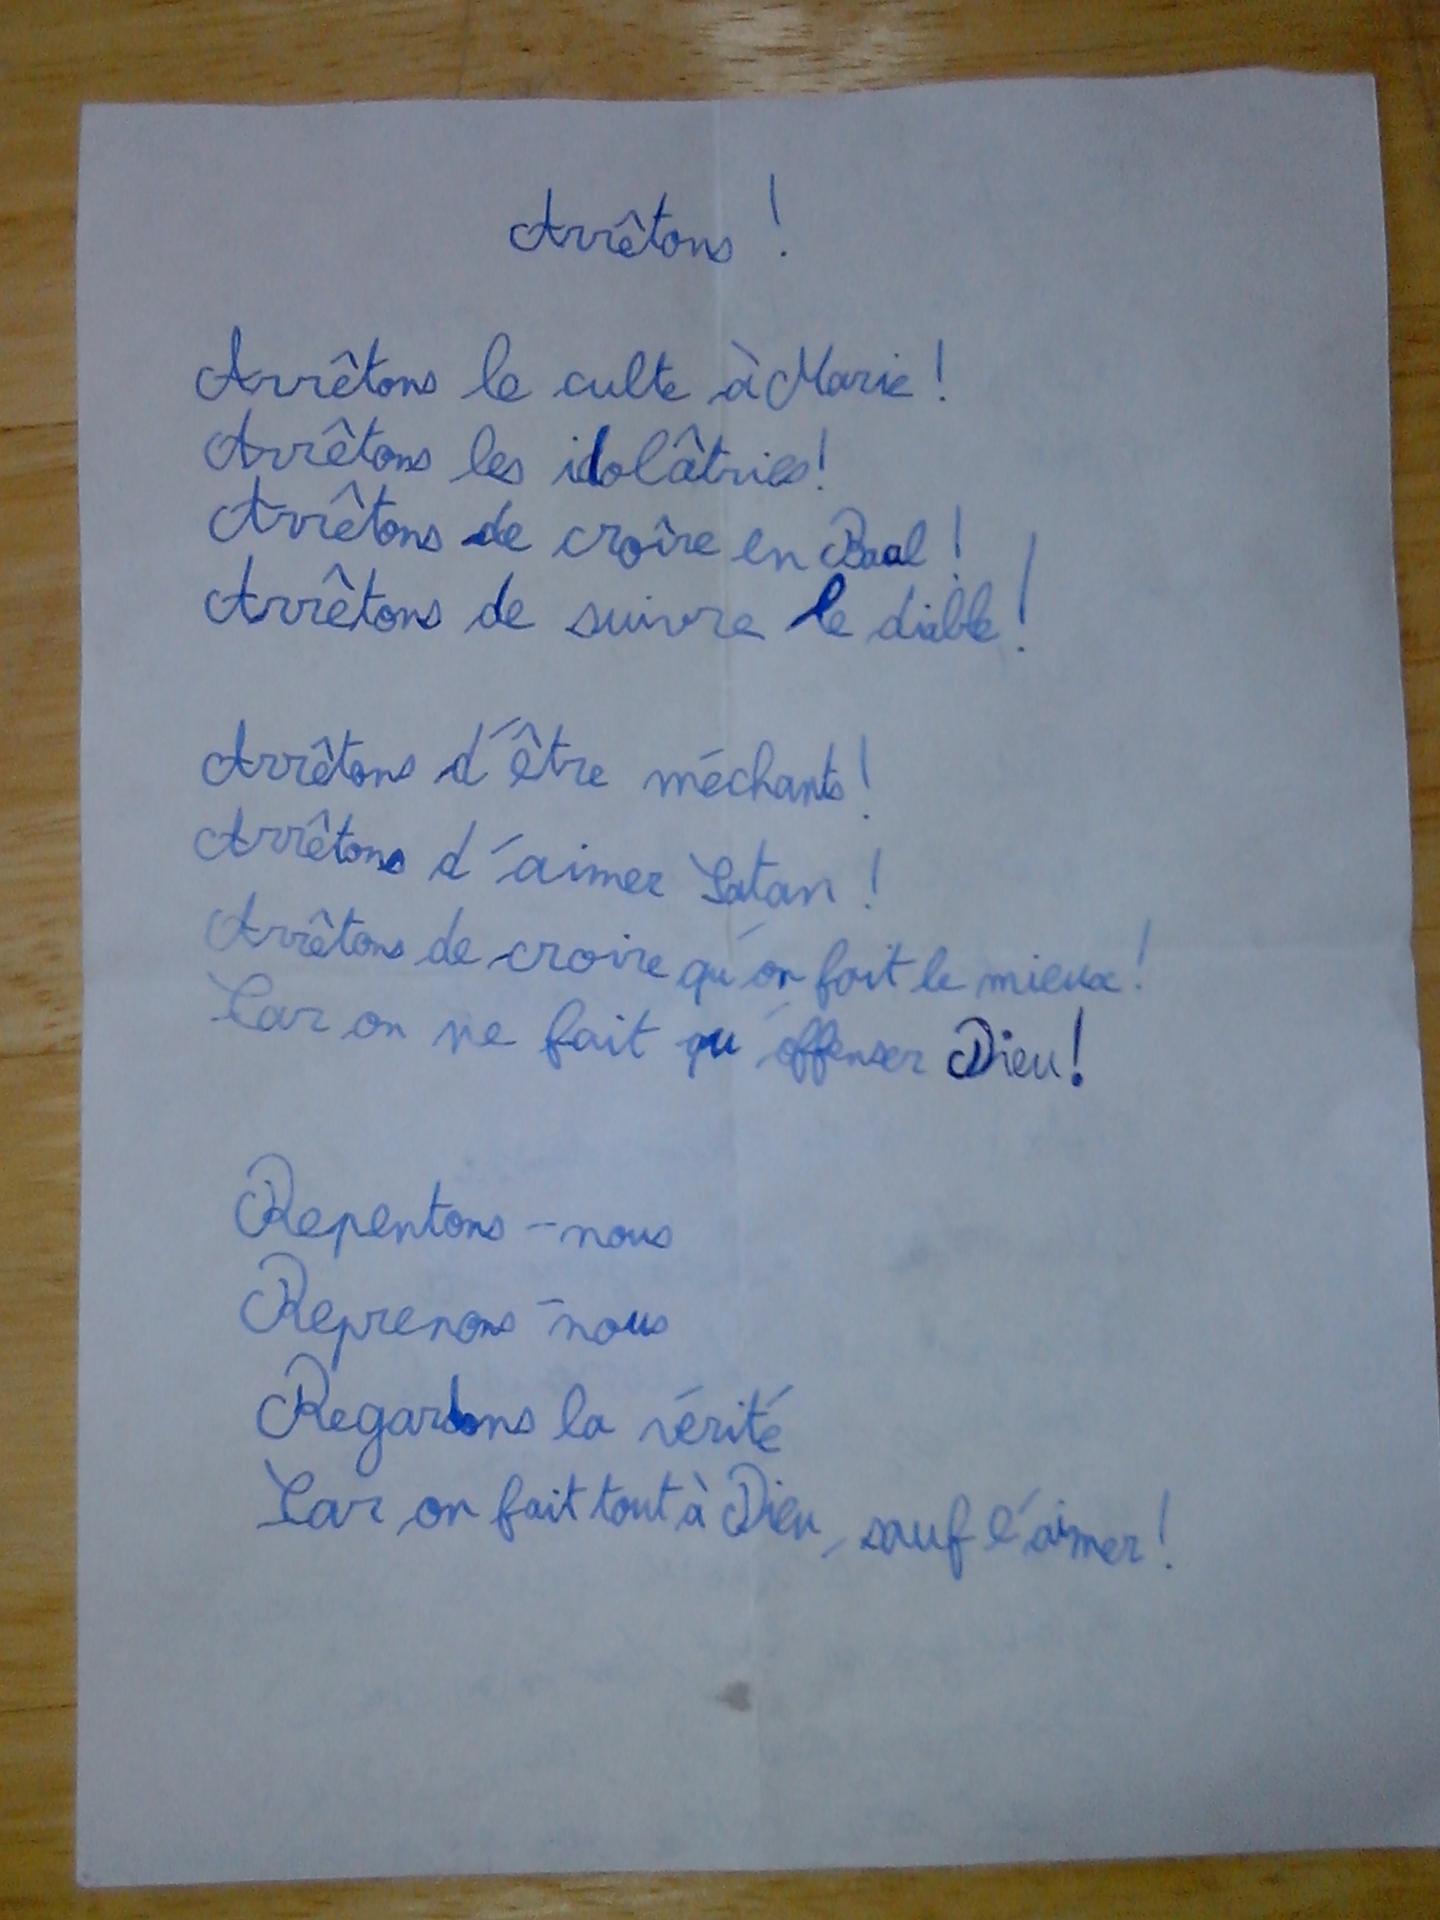 Arrêtons !
Arrêtons le culte à Marie !
Arrêtons les idolâtries !
Arrêtons de croire en Baal !
Arrêtons de suivre le diable !
Arrêtons d'être méchants !
Arrêtons d'aimer Satan !
Arrêtons de croire qu'on fait le mieux !
Car on ne fait qu'offenser Dieu !
Repentons-nous
Reprenons-nous
Regardons la vérité
Car on fait tout à Dieu, sauf l'aimer !